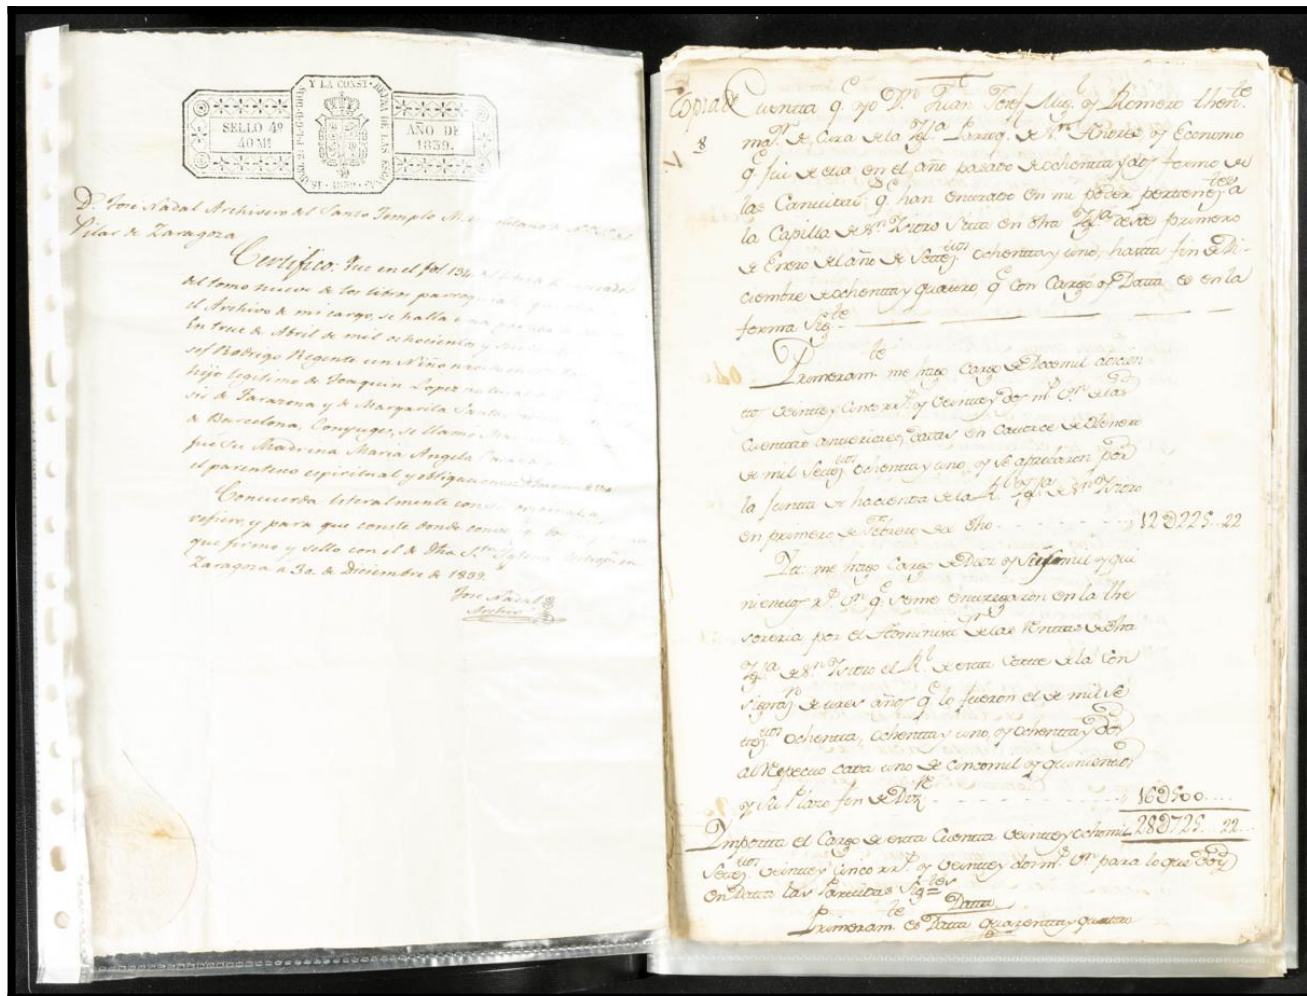 SELLO 4º
40 Ms
Y LA CONST.
REINA DE LAS ESP.
P.L.G.D.DIOS
1839
AÑO DE
1839.
Dn. José Nadal Archivero del Santo Templo Metropolitano de Ntra. Sra. del
Pilar de Zaragoza
Certifico: Que en el fol 134
del tomo nueve de los libros parroquiales que
el Archivo de mi cargo, se halla una partida
En trece de Abril de mil ochocientos y
sef Rodrigo Regente un Niño nacido
hijo legitimo de Joaquin Lopez natural
sis de Tarazona y de Margarita Santas
de Barcelona, Conyuges, se llamó
fué su Madrina Maria Angela
el parentesco espiritual y obligaciones
Concuerda literalmente con su original a
refiero, y para que conste donde convenga
que firmo y sello con el de dha Sta. Iglesia
Zaragoza a 30. de Diciembre de 1839.
José Nadal
Archivo
Copia de Cuenta q.e yo Dn. Juan Josef Mug. y Romero then.te
8 mor. de Cura de la Ygª. Parroq. de Sn. Andres y Economo
q.e fui de ella en el año pasado de ochenta y dos formo de
las Cantidas q.e han entrado en mi poder pertenez.tes a
la Capilla de Sn. Ysidro Sita en dha Ygª. desde primero
de Enero del año de Setez.tos ochenta y uno, hasta fin de Di-
ciembre de ochenta y quatro, q.e con Cargo y Datta es en la
forma Sig.te
Primeram.te me hago Cargo de Docemil docien
tos veinte y Cinco rr.s y veinte y dos m.s vn. de las
Cuentas anteriores, dadas en Catorce de Henero
de mil Setez.tos ochenta y uno, y se aprobaron por
la Junta de hacienda de la Rl. Ygª. de Sn. Ysidro
en primero de Febrero del dho 12D225..22
Yt. me hago Cargo de Diez y Seis mil y qui
nientos rs. vn. q.e se me entregaron en la the
soreria por el Administ.r de las Rentas de dha
Ygª. de Sn. Ysidro el Rl. de esta Corte de la Con
signaz.n de tres años q.e lo fueron el de mil Se
tez.tos ochenta, ochenta y uno, y ochenta y dos
al Respecto cada uno de cincomil y quinientos
y su Plazo fin de Diz.re 16D500....
Ymporta el Cargo de esta Cuenta veinte y ochomil 28D725..22
Setez.tos veinte y Cinco rr.s y veinte y dos m.s vn. para lo que doy
en Datta las Partidas Sig.tes
Datta
Primeram.te es Datta quarenta y quattro